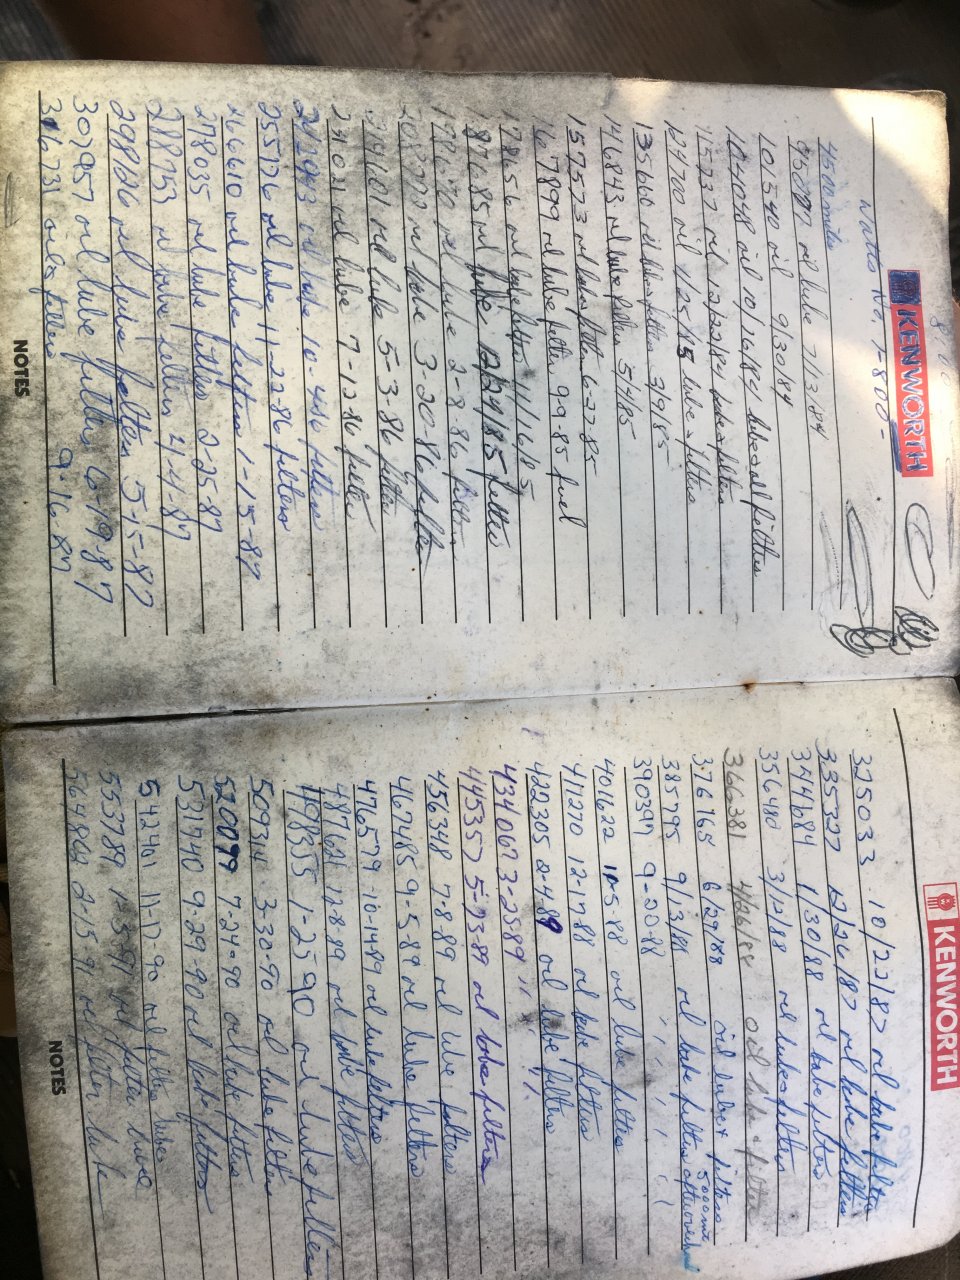 KENWORTH
Watts No. 1-800-
oil lube 7/13/84
101540 oil 9/30/84
oil 10/16/84 lube all filters
oil 12/22/84 lube + filters
124700 oil 1/25/85 lube + filters
135660 oil lube filters 3/9/85
146843 oil lube filters 5/4/85
157573 oil lube filters 6-27-85
167899 oil lube filter 9-9-85 fuel
17856 oil lube filters 11/16/85
187685 oil lube 12/24/85 filters
oil lube 2-8-86 filters
oil lube 3-20-86 filters
oil lube 5-3-86 filters
oil lube 7-12-86 filters
oil lube 10-4-86 filters
255776 oil lube 11-22-86 filters
266610 oil lube filters 1-15-87
278035 oil lube filters 2-25-87
288753 oil lube filters 4-4-87
298106 oil lube filters 5-15-87
307957 oil lube filters 6-19-87
316731 oil + filters 9-16-87
NOTES
KENWORTH
325033 10/22/87 oil lube filters
335322 12/26/87 oil lube filters
344684 1/30/88 oil lube filters
356480 3/12/88 oil lube + filters
366381 4/26/88 oil lube + filter
376765 6/29/88 oil lube + filters
385795 9/3/88 oil lube filters 5000 mi after overhaul
390397 9-20-88 " " " "
401622 10-5-88 oil lube filters
411270 12-17-88 oil lube filters
422305 2-4-89 oil lube filters
434067 3-25-89 " "
445357 5-23-89 oil lube filters
456348 7-8-89 oil lube filters
467485 9-5-89 oil lube filters
476579 10-14-89 oil lube filters
487661 12-8-89 oil lube filters
498355 1-25-90 oil lube filters
509314 3-30-90 oil lube filters
520099 7-24-90 oil lube filters
531740 9-29-90 oil lube filters
54240 11-17-90 oil filter lube
553789 1-35-91 oil filter lube
564866 2-15-91 oil filter lube
NOTES